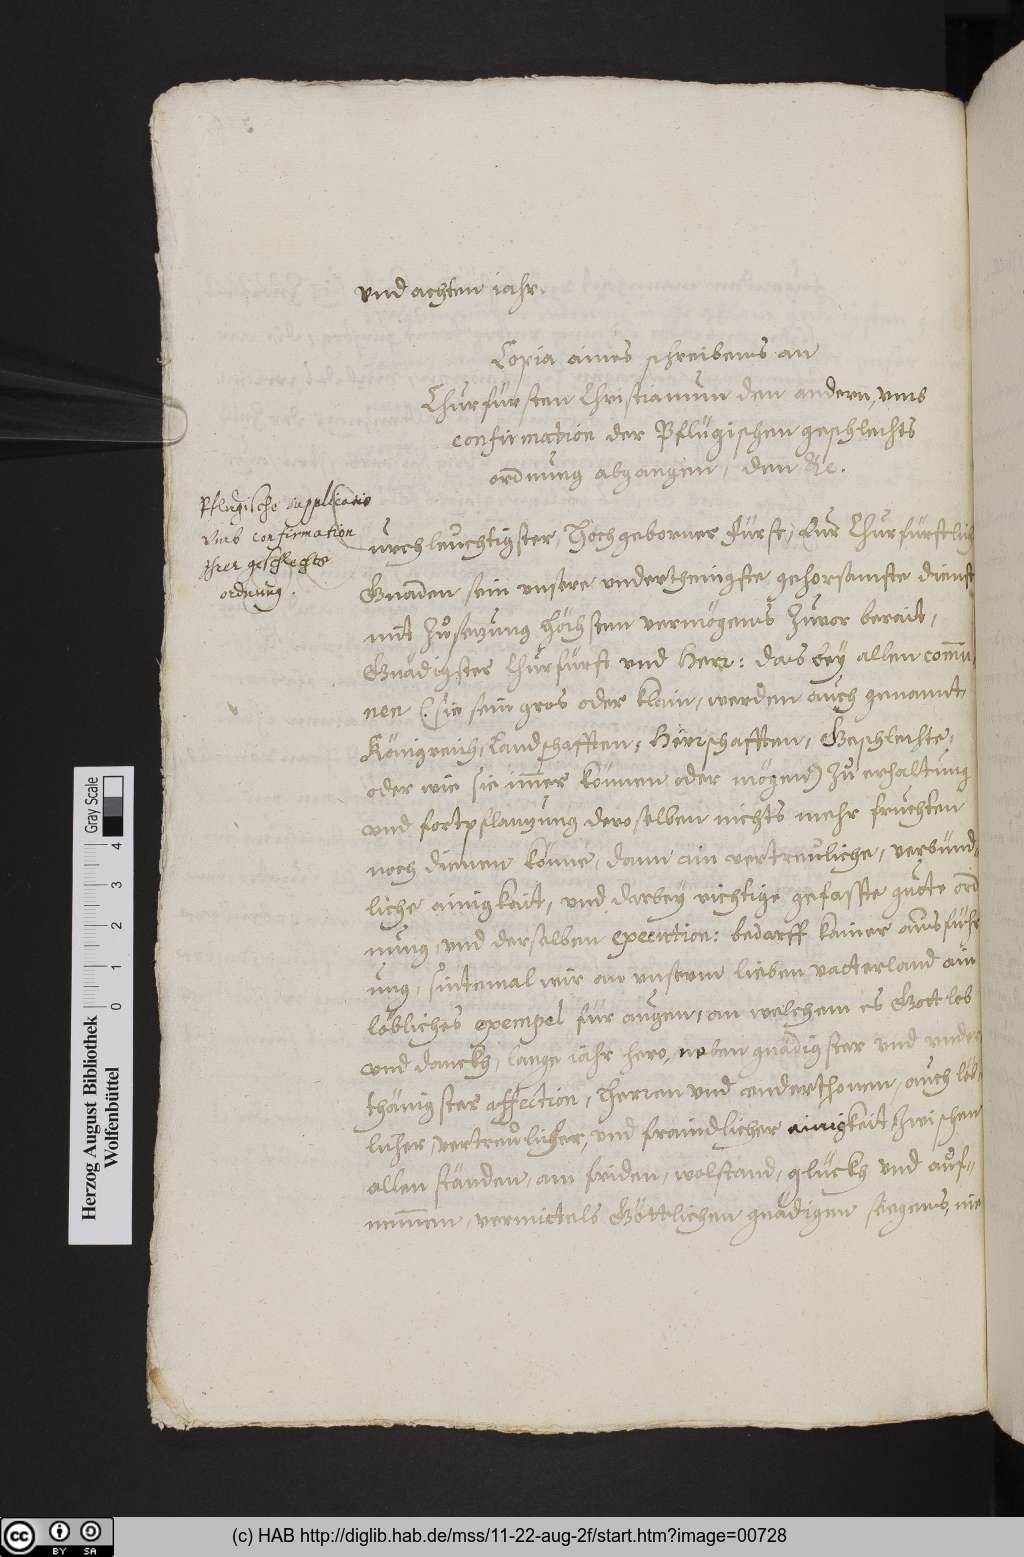 vnd achten iahr.
Copia aines schreibens an
Churfürsten Christianum den andern, vmb
confirmation der Pflügischen geschlechts
ordnung abgangen, den Re.
Pflugische supplicatio
vmb confirmation
ihrer geschlechts
ordnung.
urchleuchtigster, Hochgeborner Fürst, Eur Churfürstlich
Gnaden sein vnsere vnderthenigste gehorsamste dienst
mit Zusezung höchsten vermögens Zuuor berait,
Gnädigster Churfürst vnd Herr: das bey allen commu
nen (: sie sein gros oder klain, werden auch genannt,
Königreich, Landschafften, Herrschafften, Geschlechte,
oder wie sie immer können oder mögen) Zu erhaltung
vnd fortpflantzung deroselben nichts mehr fruchten
noch dienen könne, dann ain vertreuliche, verbünd-
liche ainigkait, vnd darbey richtige gefasste guote ord
nung, vnd derselben execution: bedarff kainer aussfüer
ung, sintemal wir an vnserm lieben vatterland ain
löbliches exempel für augen, an welchem es Gott lob
vnd danckh, lange iahr hero, neben gnädigster vnd vnder
thänigster affection, Herren vnd vnderthonen, auch löb
licher, vertreulicher, vnd fraindlicher ainigkeit Zwischen
allen ständen, am friden, wolstand, glückh vnd auf-
nemmen, vermittels Göttlichen gnädigen seegens, nie
Gray Scale
0 1 2 3 4
Herzog August Bibliothek
Wolfenbüttel
cc BY SA
(c) HAB http://diglib.hab.de/mss/11-22-aug-2f/start.htm?image=00728